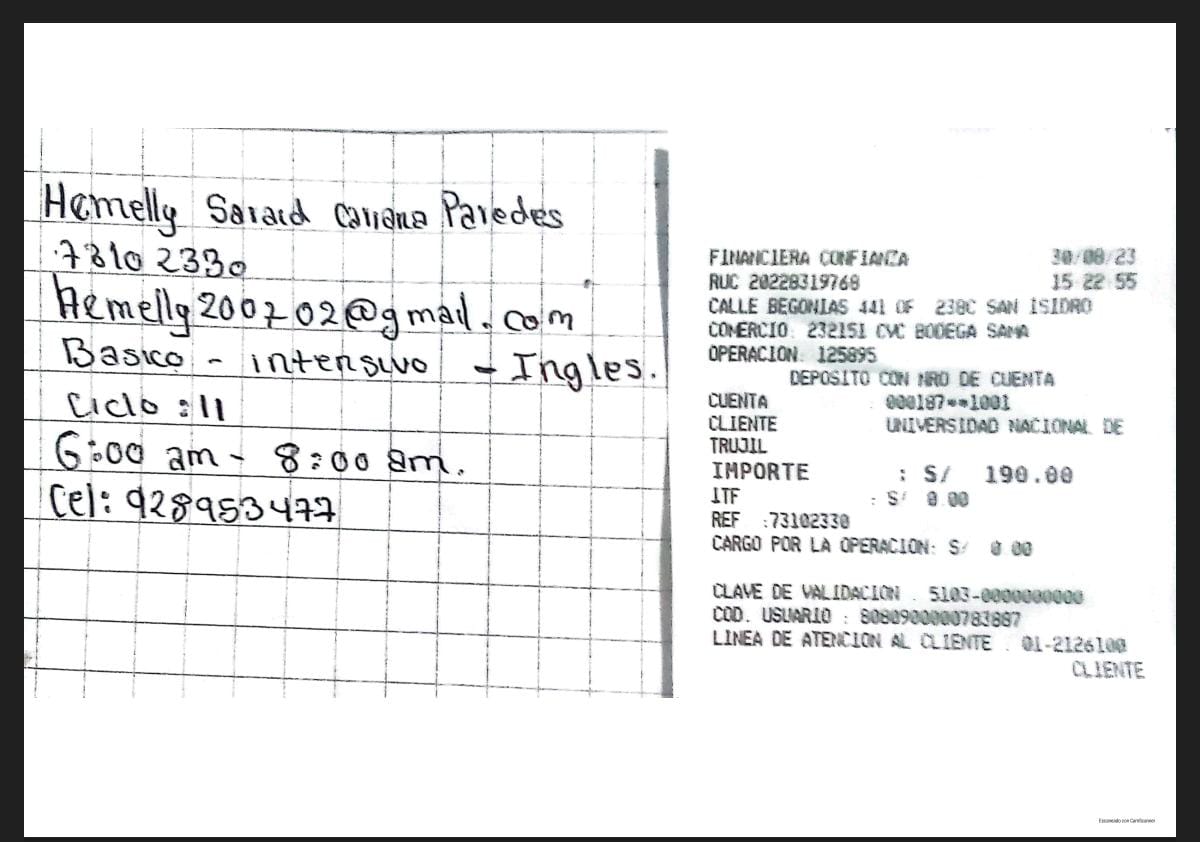 Hemelly Saraid Carrana Paredes
73102330
Hemelly200202@gmail.com
Basico - intensivo - Ingles.
Ciclo : 11
6:00 am - 8:00 am.
Cel: 928953477
FINANCIERA CONFIANZA 30/08/23
RUC 20228319768 15:22:55
CALLE BEGONIAS 441 OF 238C SAN ISIDRO
COMERCIO: 232151 CVC BODEGA SAMA
OPERACION: 125895
DEPOSITO CON NRO DE CUENTA
CUENTA : 000187**1001
CLIENTE UNIVERSIDAD NACIONAL DE
TRUJIL
IMPORTE : S/ 190.00
ITF : S/ 0.00
REF :73102330
CARGO POR LA OPERACION: S/ 0.00
CLAVE DE VALIDACION : 5103-0000000000
COD. USUARIO : 8080900000783887
LINEA DE ATENCION AL CLIENTE : 01-2126100
CLIENTE
Escaneado con CamScanner